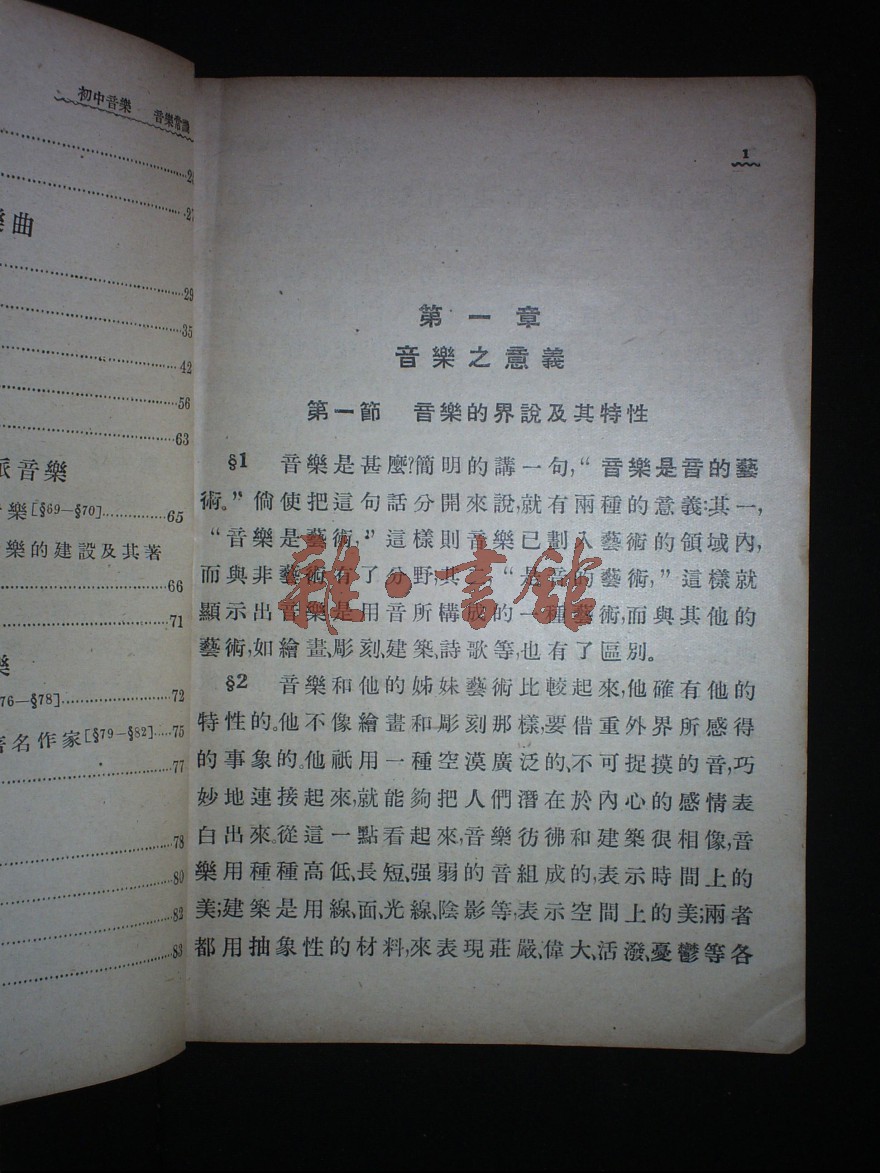 初中音樂 音樂常識
27
樂曲
29
35
42
56
63
派音樂
樂[§69—§70]................65
樂的建設及其著
66
71
樂
76—§78]................72
著名作家[§79—§82]....75
77
78
80
82
83
1
第一章
音樂之意義
第一節 音樂的界說及其特性
§1 音樂是甚麼?簡明的講一句,“音樂是音的藝
術。”倘使把這句話分開來說,就有兩種的意義:其一,
“音樂是藝術,”這樣則音樂已劃入藝術的領域內,
而與非藝術有了分野;其二,“是音的藝術,”這樣就
顯示出音樂是用音所構成的一種藝術,而與其他的
藝術,如繪畫、彫刻、建築、詩歌等,也有了區別。
§2 音樂和他的姊妹藝術比較起來,他確有他的
特性的。他不像繪畫和彫刻那樣,要借重外界所感得
的事象的。他祇用一種空漠廣泛的、不可捉摸的音,巧
妙地連接起來,就能夠把人們潛在於內心的感情表
白出來。從這一點看起來,音樂彷彿和建築很相像,音
樂用種種高低、長短、强弱的音組成的,表示時間上的
美;建築是用線、面、光線、陰影等,表示空間上的美;兩者
都用抽象性的材料,來表現莊嚴、偉大、活潑、憂鬱等各
雜·書館